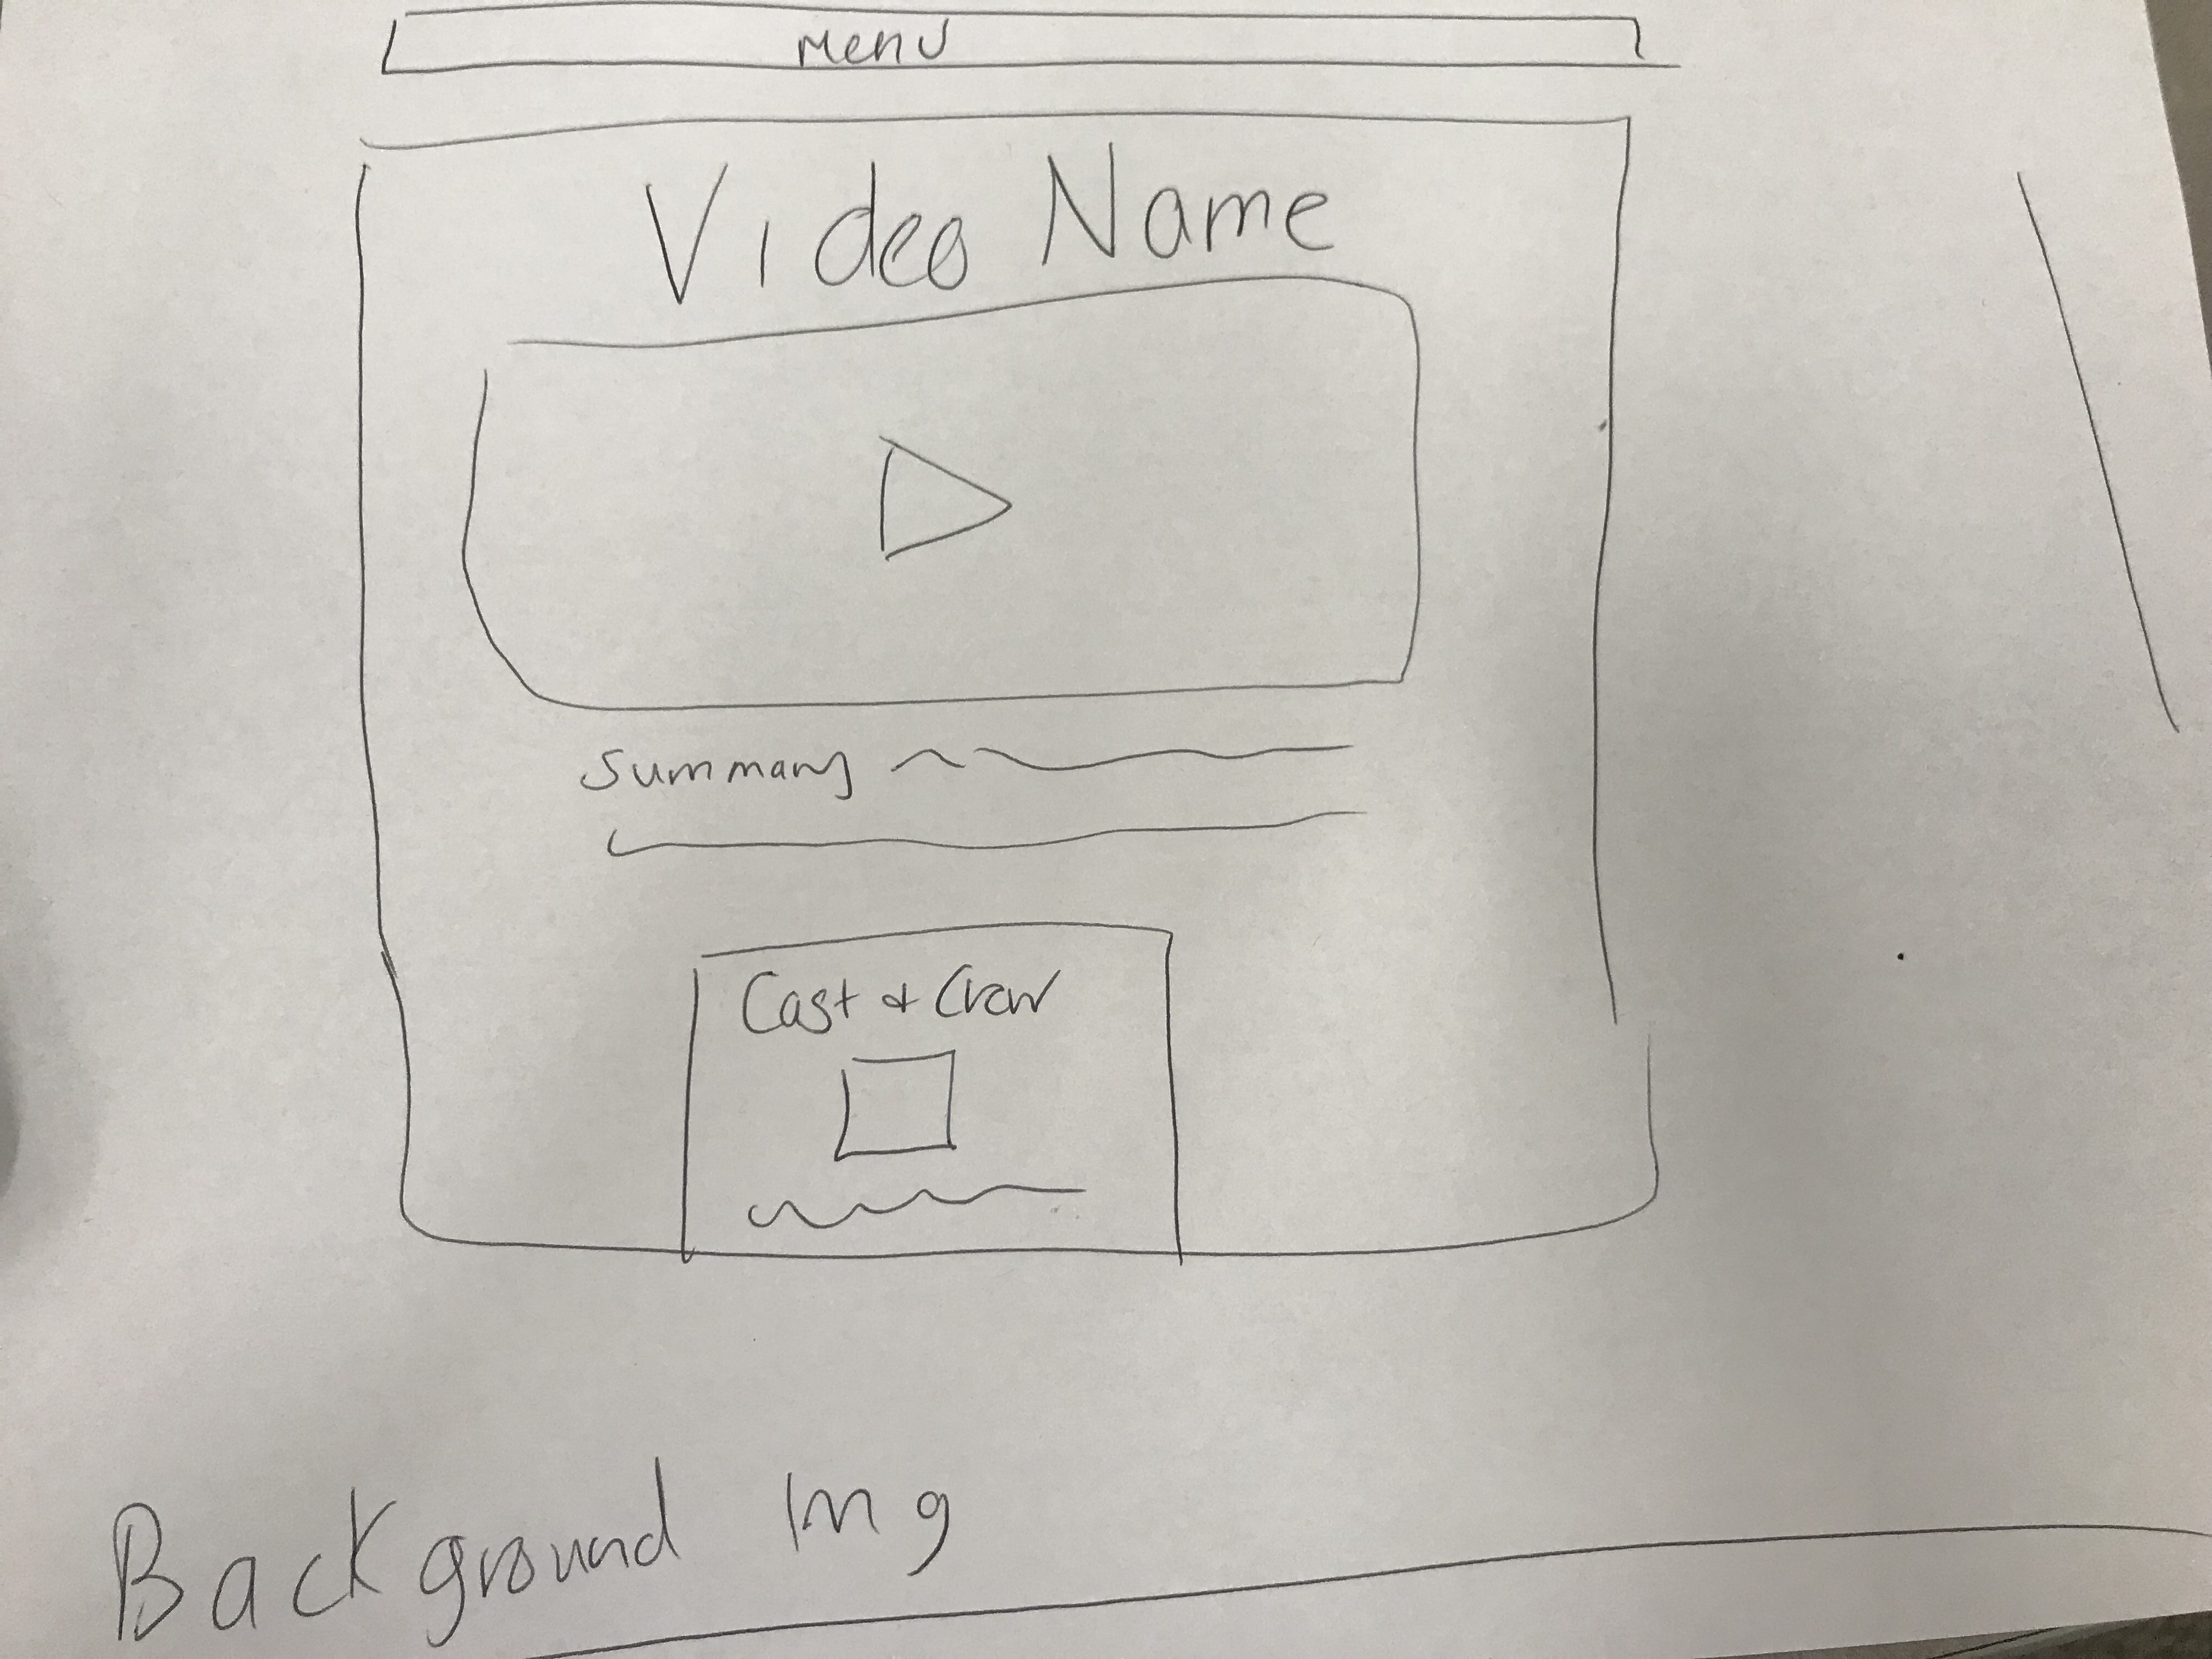 menu
Video Name
Summary
Cast & Crew
Background Img